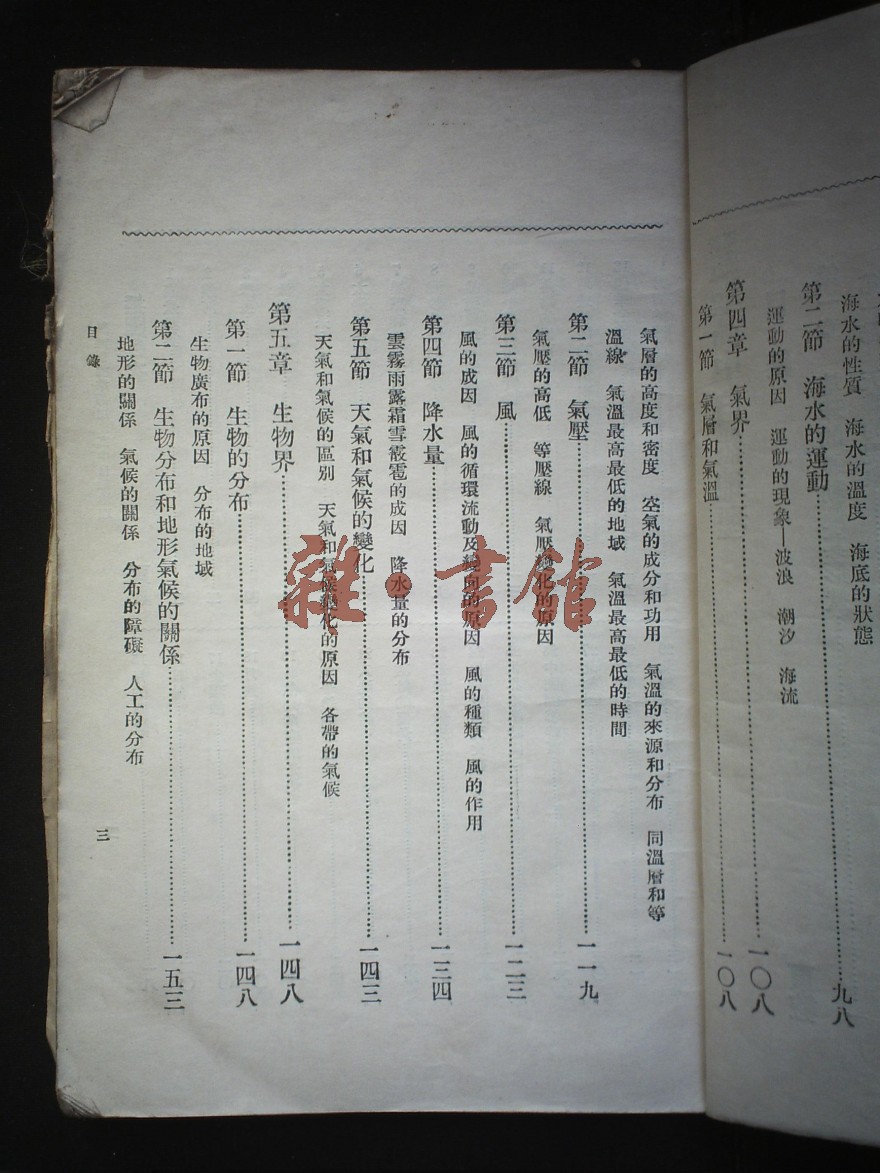 海水的性質　海水的溫度　海底的狀態
第二節　海水的運動……九八
運動的原因　運動的現象—波浪　潮汐　海流
第四章　氣界……一〇八
第一節　氣層和氣溫……一〇八
氣層的高度和密度　空氣的成分和功用　氣溫的來源和分布　同溫層和等
溫線　氣溫最高最低的地域　氣溫最高最低的時間
第二節　氣壓……一一九
氣壓的高低　等壓線　氣壓變化的原因
第三節　風……一二三
風的成因　風的循環流動及變向的原因　風的種類　風的作用
第四節　降水量……一三四
雲霧雨露霜雪霰雹的成因　降水量的分布
第五節　天氣和氣候的變化……一四三
天氣和氣候的區別　天氣和氣候變化的原因　各帶的氣候
第五章　生物界……一四八
第一節　生物的分布……一四八
生物廣布的原因　分布的地域
第二節　生物分布和地形氣候的關係……一五三
地形的關係　氣候的關係　分布的障礙　人工的分布
目錄　三
雜·書館